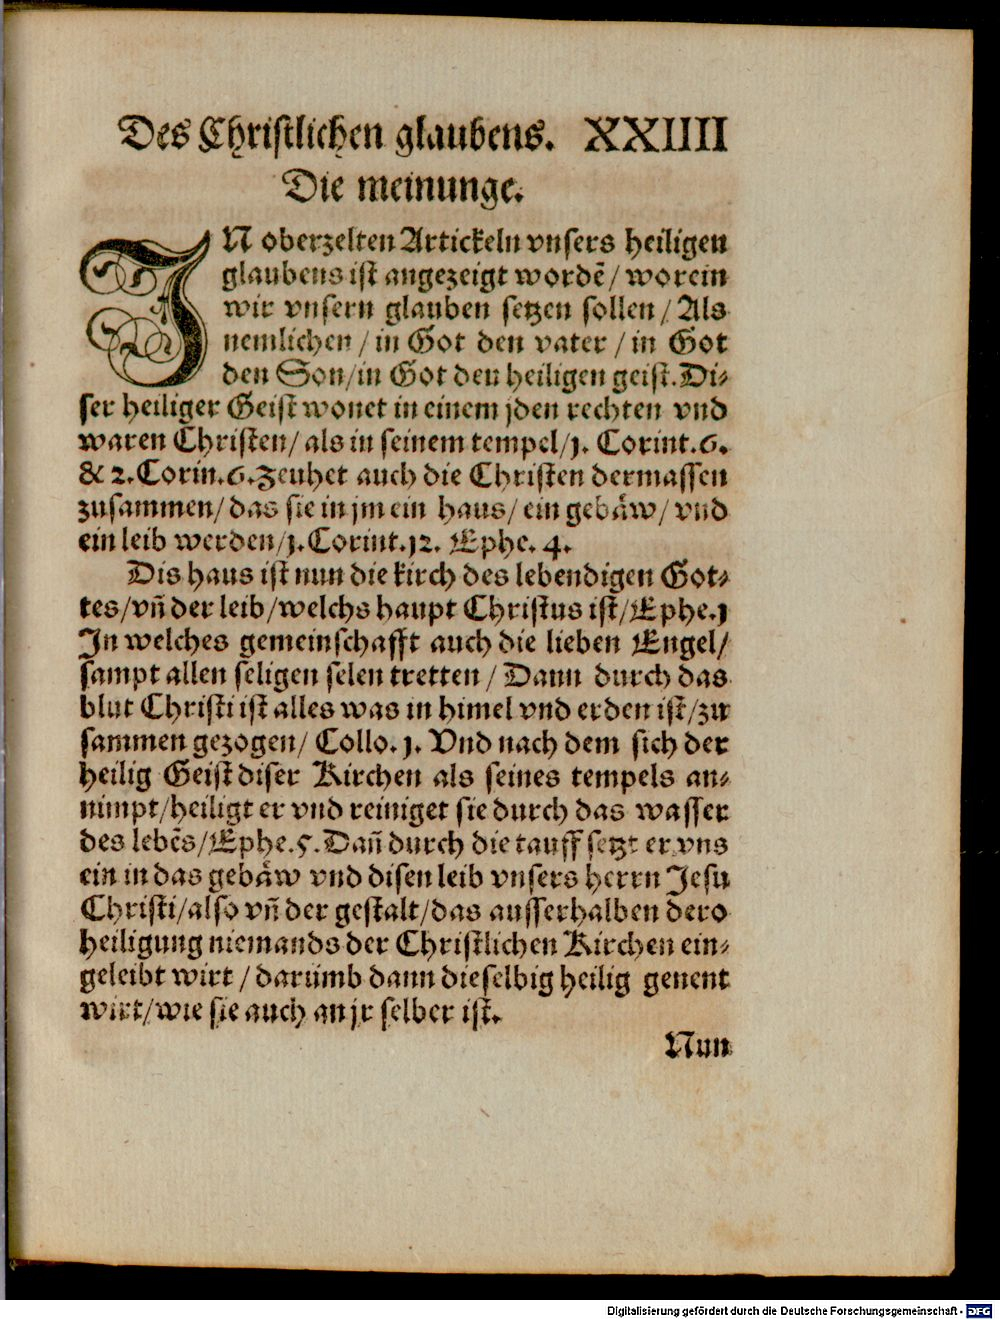 Des Christlichen glaubens. XXIIII
Die meinunge.
IN oberzelten Artickeln vnsers heiligen
glaubens ist angezeigt wordē / worein
wir vnsern glauben setzen sollen / Als
nemlichen / in Got den vater / in Got
den Son/in Got den heiligen geist. Di-
ser heiliger Geist wonet in einem jden rechten vnd
waren Christen/ als in seinem tempel/1. Corint.6.
& 2.Corin.6.zeuhet auch die Christen dermassen
zusammen/ das sie in jm ein haus/ ein gebäw/ vnd
ein leib werden/1.Corint.12. Ephe. 4.
Dis haus ist nun die kirch des lebendigen Got-
tes/vñ der leib/welchs haupt Christus ist/Ephe.1
In welches gemeinschafft auch die lieben Engel/
sampt allen seligen selen tretten / Dann durch das
blut Christi ist alles was in himel vnd erden ist/zu
sammen gezogen/ Collo. 1. Vnd nach dem sich der
heilig Geist diser Kirchen als seines tempels an-
nimpt/heiligt er vnd reiniget sie durch das wasser
des lebēs/Ephe.5.Dañ durch die tauff setzt er vns
ein in das gebäw vnd disen leib vnsers herrn Jesu
Christi/also vñ der gestalt/das ausserhalben dero
heiligung niemands der Christlichen Kirchen ein-
geleibt wirt / darumb dann dieselbig heilig genent
wirt/wie sie auch an jr selber ist.
Nun
Digitalisierung gefördert durch die Deutsche Forschungsgemeinschaft - DFG